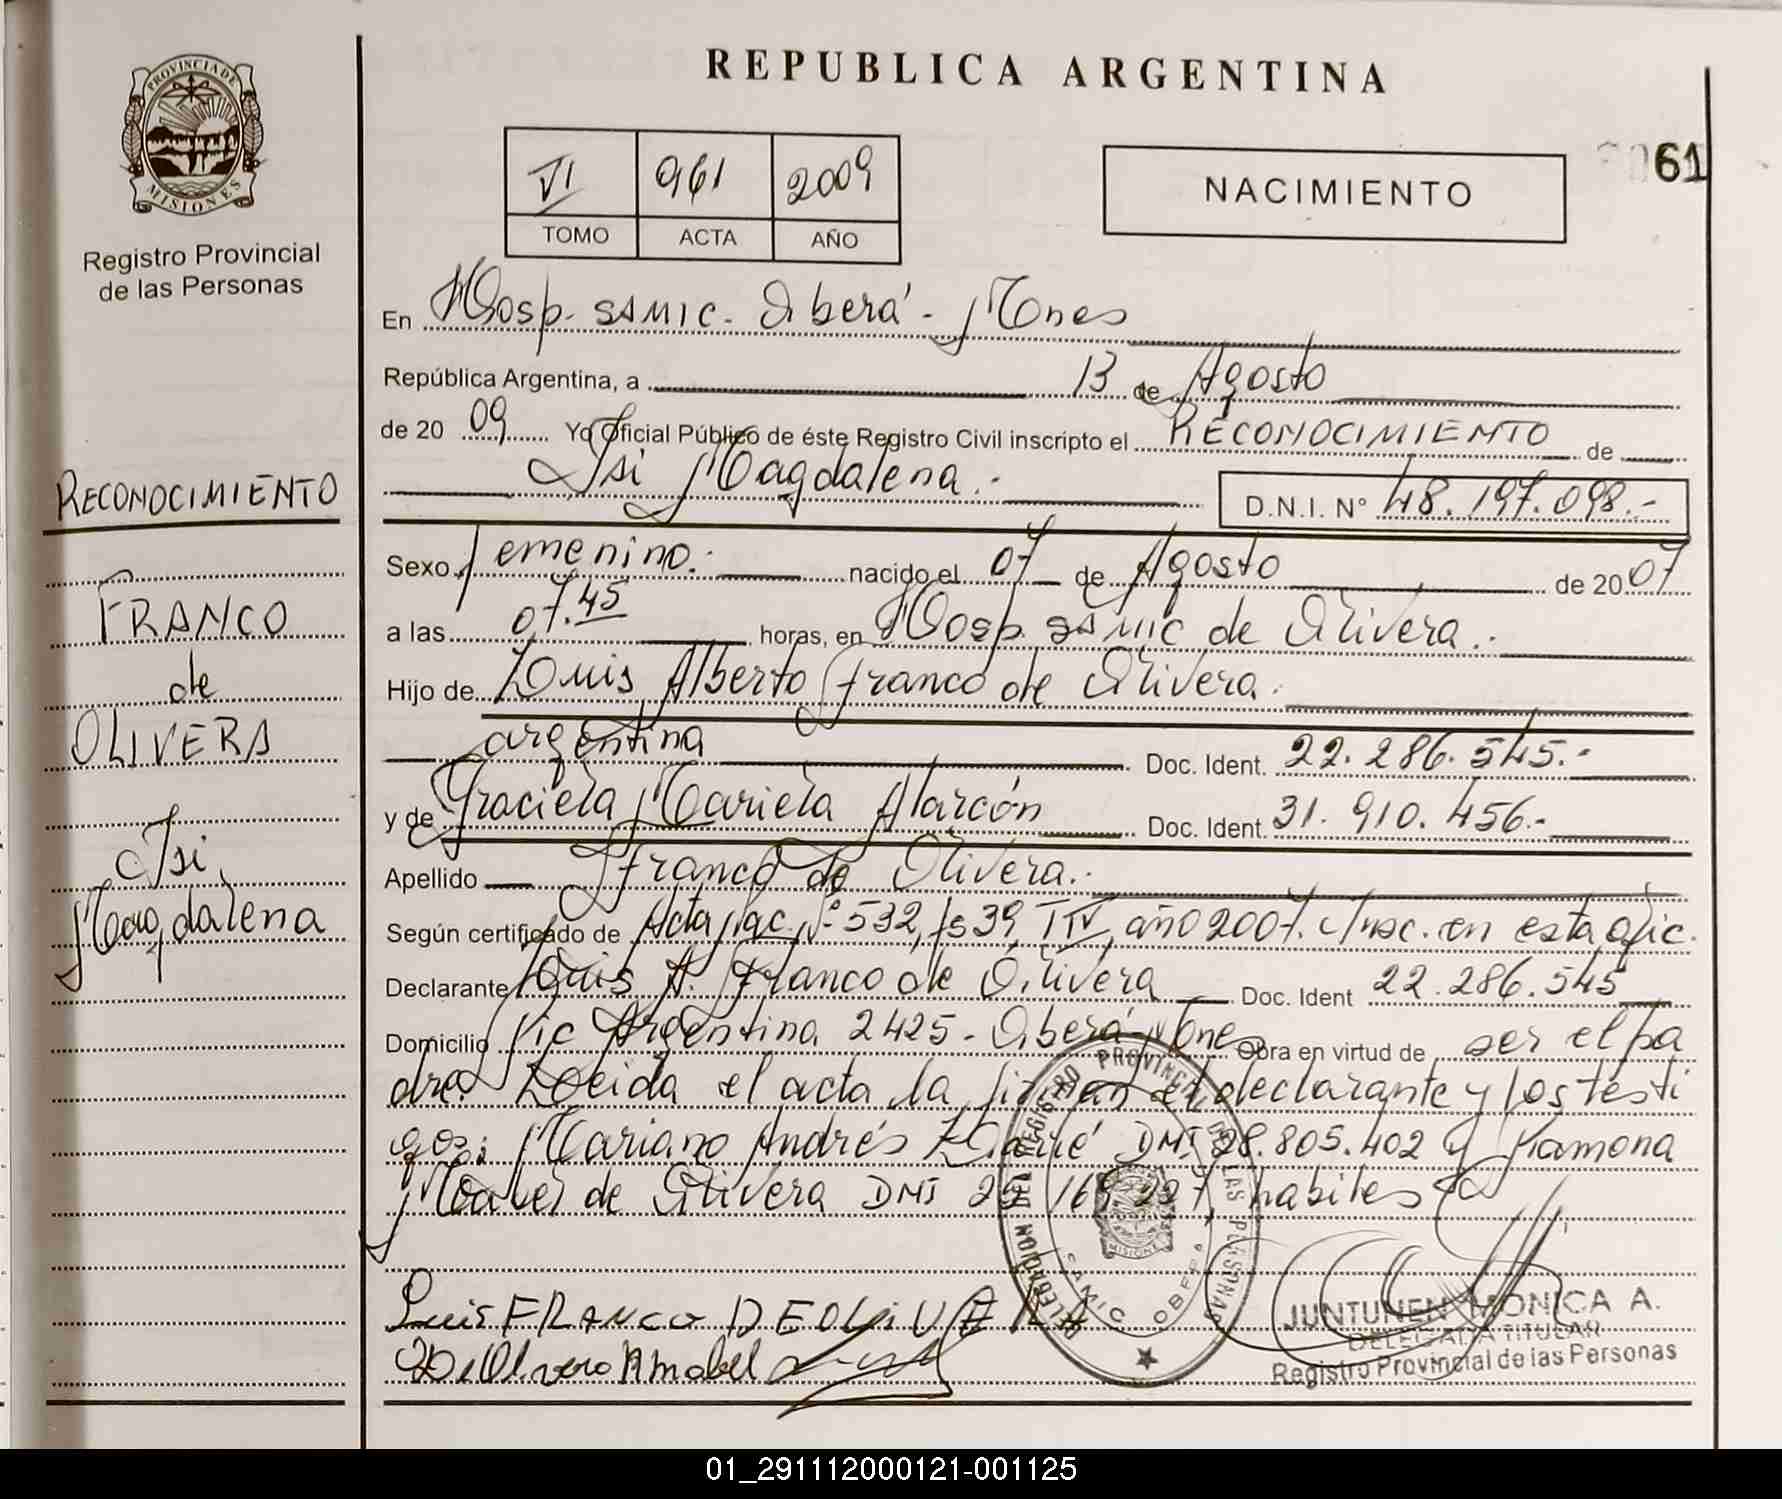 REPUBLICA ARGENTINA
PROVINCIA DE
MISIONES
Registro Provincial
de las Personas
VI 961 2009
TOMO ACTA AÑO
NACIMIENTO
61
En Hosp. SAMIC. Oberá - Mnes
República Argentina, a 13 de Agosto
de 20 09 Yo Oficial Público de éste Registro Civil inscripto el RECONOCIMIENTO de
Isi Magdalena.- D.N.I. Nº 48.197.098.-
Sexo femenino. nacido el 07 de Agosto de 2007
a las 07.45 horas, en Hosp. SAMIC de Olivera.
Hijo de Luis Alberto Franco de Olivera.
argentina Doc. Ident. 22.286.545.-
y de Graciela Mariela Alarcón Doc. Ident. 31.910.456.-
Apellido Franco de Olivera.
Según certificado de Acta Nac. Nº 532, fs 39, T IV, año 2007. Insc. en esta ofic.
Declarante Luis A. Franco de Olivera Doc. Ident 22.286.545
Domicilio Pic Argentina 2425 - Oberá Mnes Obra en virtud de ser el pa
dre. Leida el acta la firman el declarante y los testi
gos: Mariano Andrés DNI 28.805.402 y Ramona
Mabel de Olivera DNI 25 169 227 habiles
Luis FRANCO DE OLIVERA
De Olivera Amabel
DELEGACION DEL REGISTRO PROVINCIAL DE LAS PERSONAS
MISIONES
SAMIC OBERA
JUNTUNEN MONICA A.
DELEGADA TITULAR
Registro Provincial de las Personas
RECONOCIMIENTO
FRANCO
de
OLIVERA
Isi
Magdalena
01_291112000121-001125